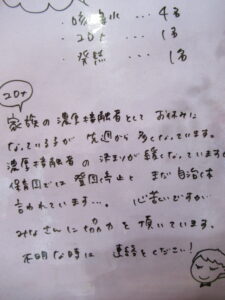 ・咳・鼻水 … 4名
・コロナ … 1名
・発熱 … 1名
コロナ
家族の濃厚接触者として お休みに
なっている子が 先週から 多くなっています。
濃厚接触者の 決まりが 緩くなっていますが
保育園では 登園停止と まだ 自治体
言われています…。 心苦しいですが
みなさんに協力を頂いています。
不明な時は 連絡をください!